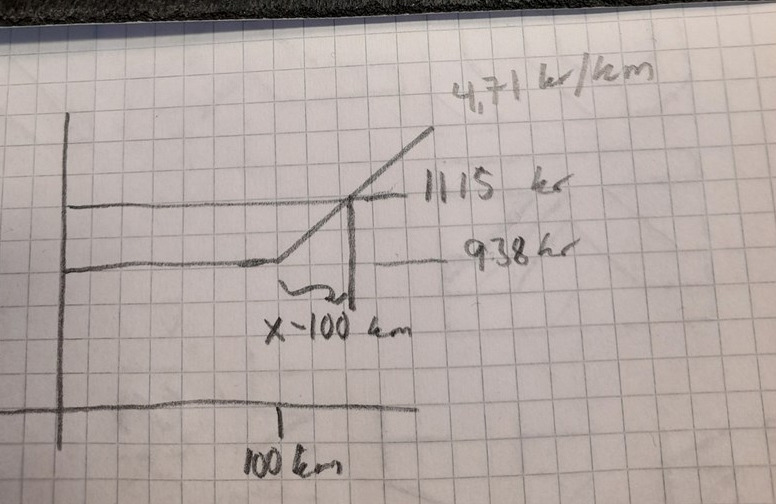 4,71 kr/km
1115 kr
938 kr
x-100 km
100 km